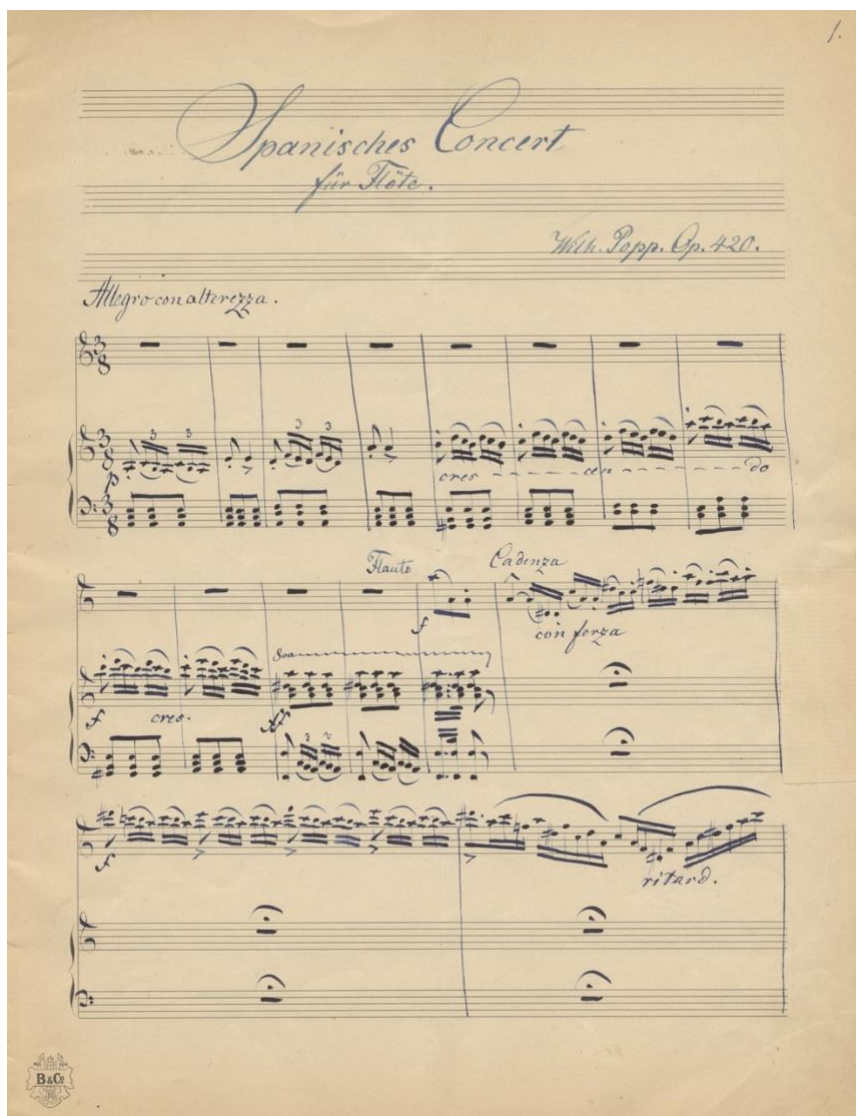 1.
Spanisches Concert
für Flöte.
Wilh. Popp. Op. 420.
Allegro con alterezza.
3 8
3 3 3 3
3 8
p cres - - - - - - cen - - - - - do
3 8
Flauto Cadenza
f con forza
8va
f cres. ff
3 3
f ritard.
B & Co